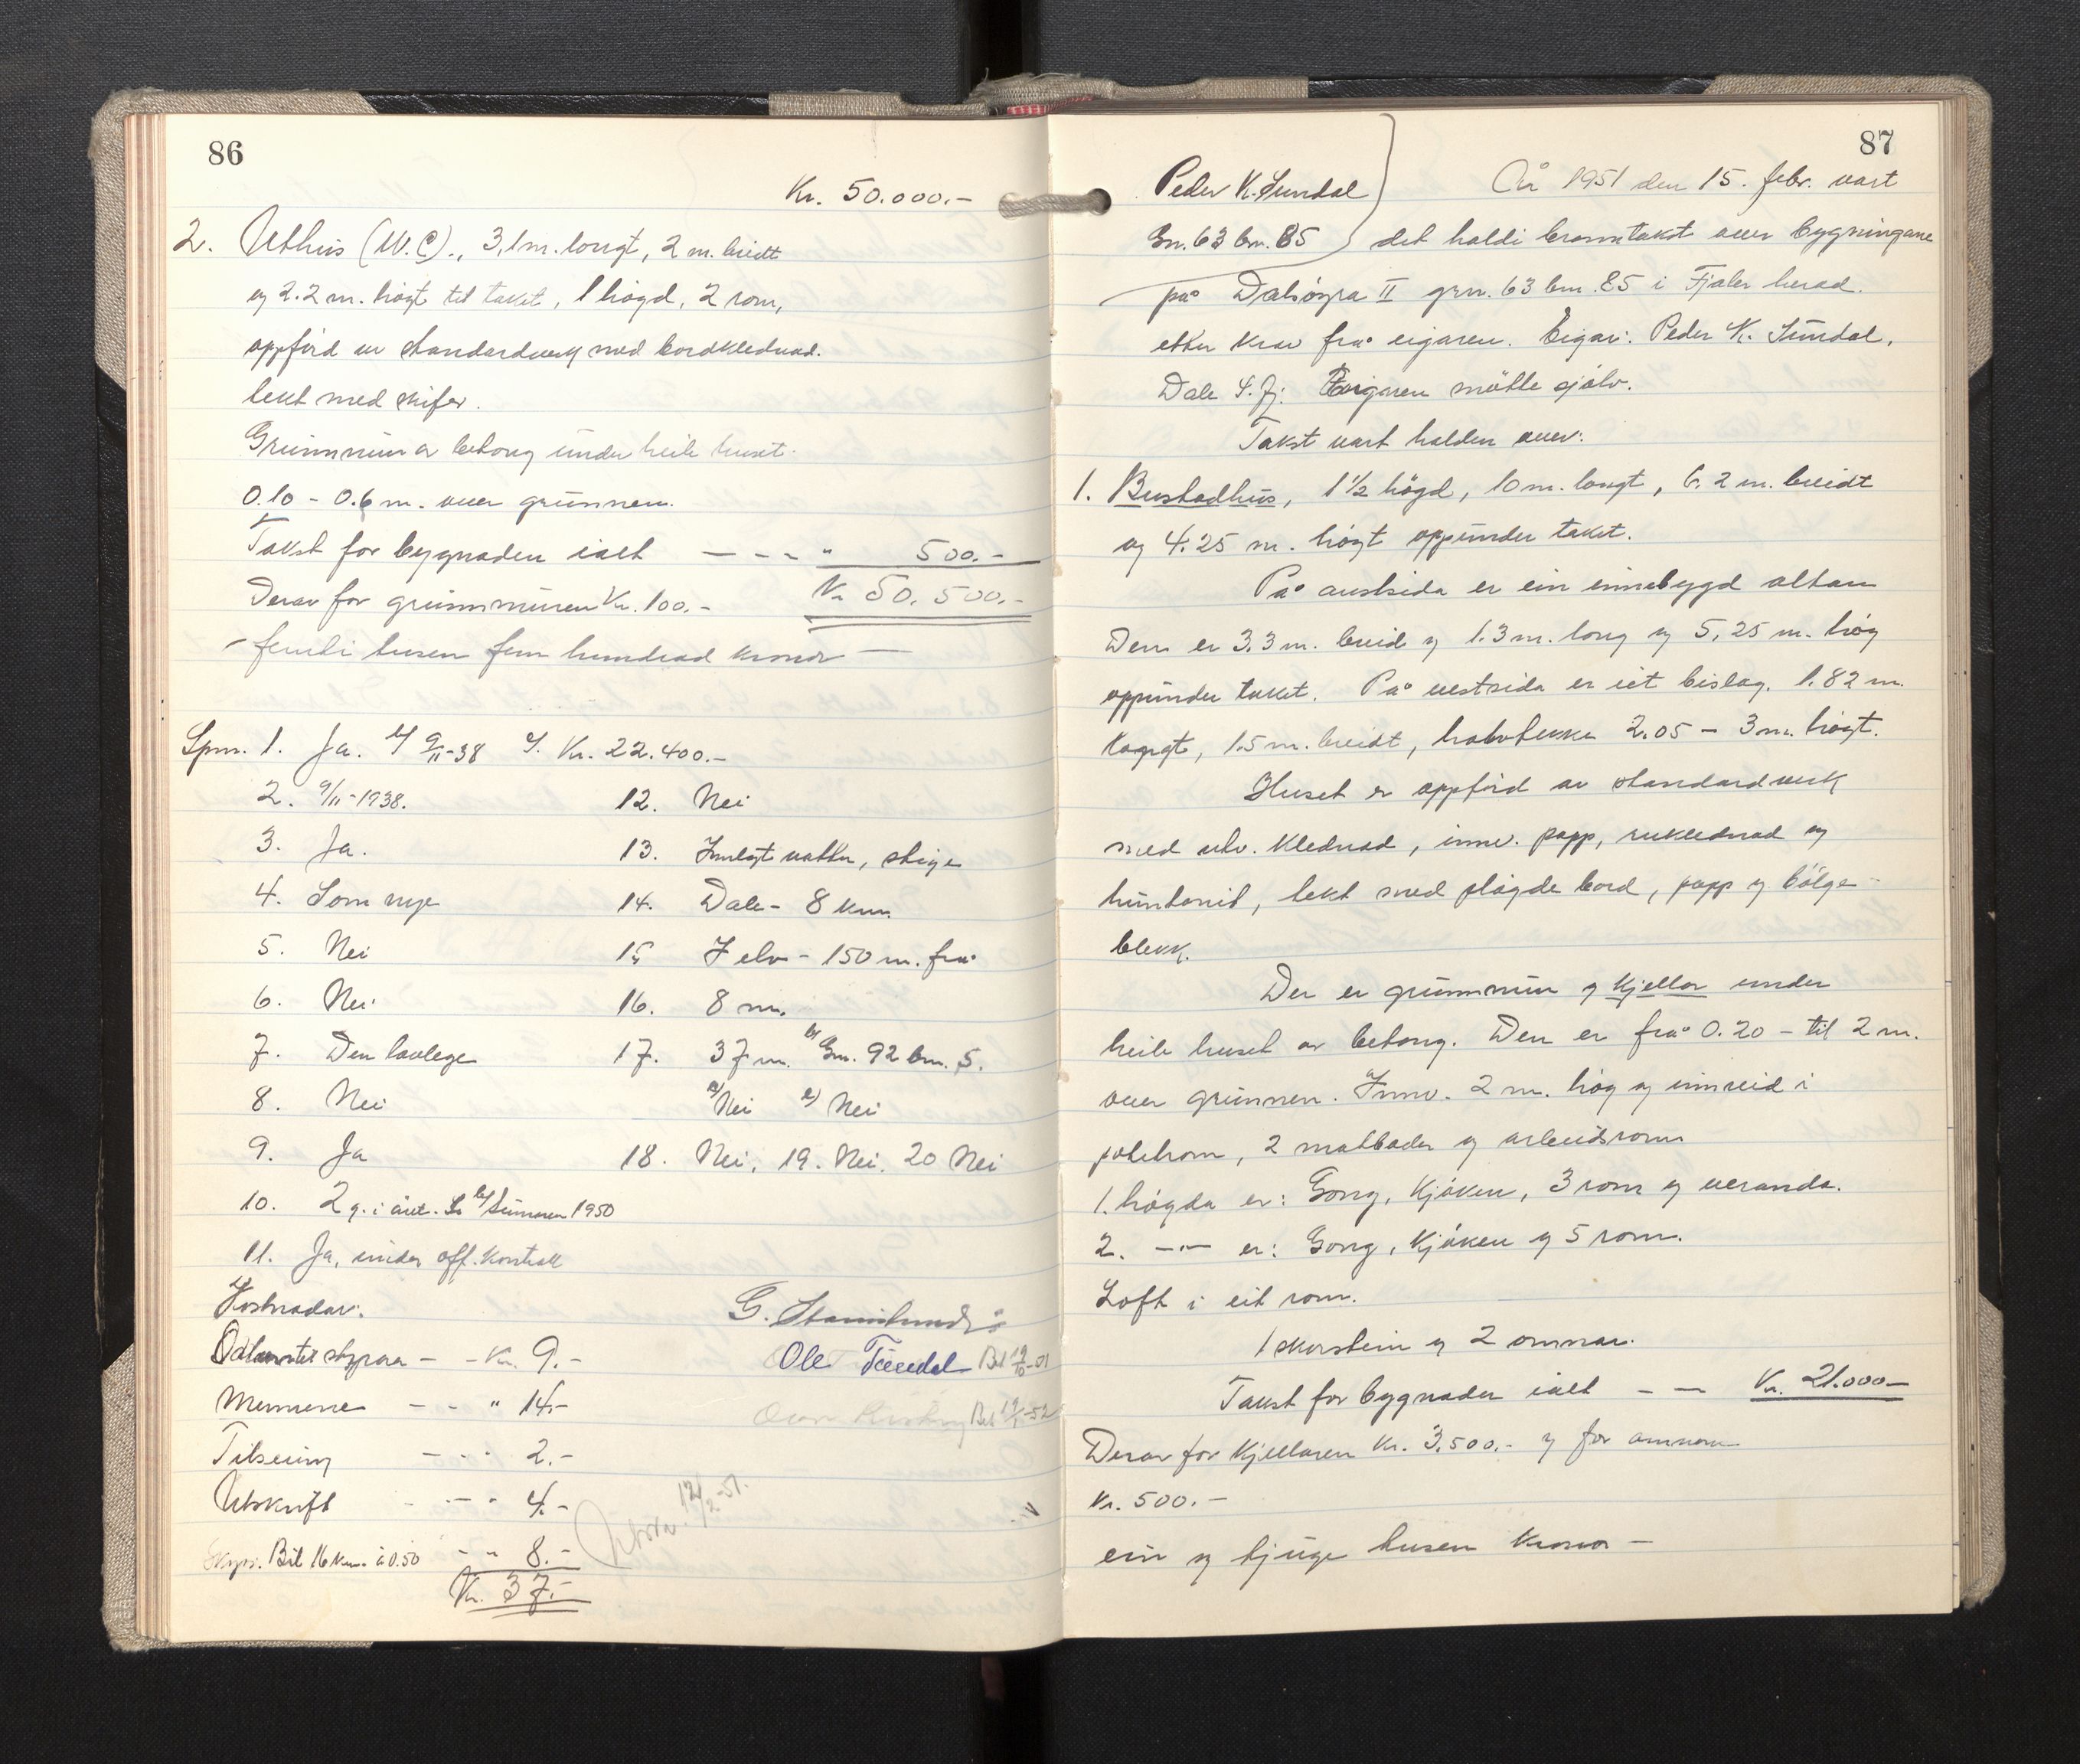 86
Kr. 50.000.-
2. Uthus (W.C)., 3,1 m. langt, 2 m. breidt
og 2.2 m. högt til taket, 1 högd, 2 rom,
oppförd av standardverk med bordklednad.
tekt med skifer.
Grunnmur av betong under heile huset.
0.10 - 0.6 m. over grunnen.
Takst for bygnaden ialt - - - " 500.-
Derav for grunnmuren Kr. 100.- Kr 50.500.-
- femti tusen fem hundrad kronor -
Spm. 1. Ja. b/ 9/11-38 c/. Kr. 22.400.-
2. 9/11-1938. 12. Nei
3. Ja. 13. Innlagt vatn, stige
4. Som nye 14. Dale - 8 km.
5. Nei 15 I elv - 150 m. frå
6. Nei 16. 8 m.
7. Den lovlege 17. 37 m. b/ Gnr. 92 bnr. 5.
8. Nei d/ Nei e/ Nei
9. Ja 18. Nei, 19. Nei. 20 Nei
10. 2 g. i året. b/ Sumaren 1950
11. Ja, under off. kontroll
Kostnadar:
styrar - - Kr. 9.-
Mennene - - " 14.-
Ole Bet 19/10-51
Tilsening - - - 2.-
Bet 19/1-52
Utskrift - - - 4.-
Utskr. 12/2-51.
Skyss. Bil 16 km. à 0.50 - - 8.-
Kr. 37.-
87
Peder K. Sundal
Gnr. 63 bnr. 85
År 1951 den 15. febr. vart
det haldi branntakst over bygningane
på Dalsøyra II gnr. 63 bnr. 85 i Fjaler herad.
etter krav frå eigaren. Eigar: Peder K. Sundal,
Dale S.fj. Eigaren møtte sjølv.
Takst vart halden over:
1. Bustadhus, 1½ högd, 10 m. langt, 6.2 m. breidt
og 4.25 m. högt oppunder taket.
På austsida er ein innebygd altan
Den er 3.3 m. breid og 1.3 m. long og 5,25 m. høg
oppunder taket. På vestsida er eit bislag. 1.82 m.
langt, 1.5 m. breidt, halvtekke 2.05 - 3 m. högt.
Huset er oppförd av standardverk
med utv. klednad, innv. papp, ruklednad og
huntonit, tekt med pløgde bord, papp og bölge-
blekk.
Der er grunnmur og kjellar under
heile huset av betong. Den er frå 0.20 - til 2 m.
over grunnen. Innv. 2 m. høg og innreid i
potetrom, 2 matboder og arbeidsrom
1. högda er: Gong, kjöken, 3 rom og veranda.
2. -"- er: Gong, kjöken og 5 rom.
Loft i eit rom.
1 skorstein og 2 omnar.
Takst for bygnaden ialt - - Kr. 21.000-
Derav for kjellaren Kr. 3.500.- og for omnar
Kr. 500.-
ein og tjuge tusen kronor -